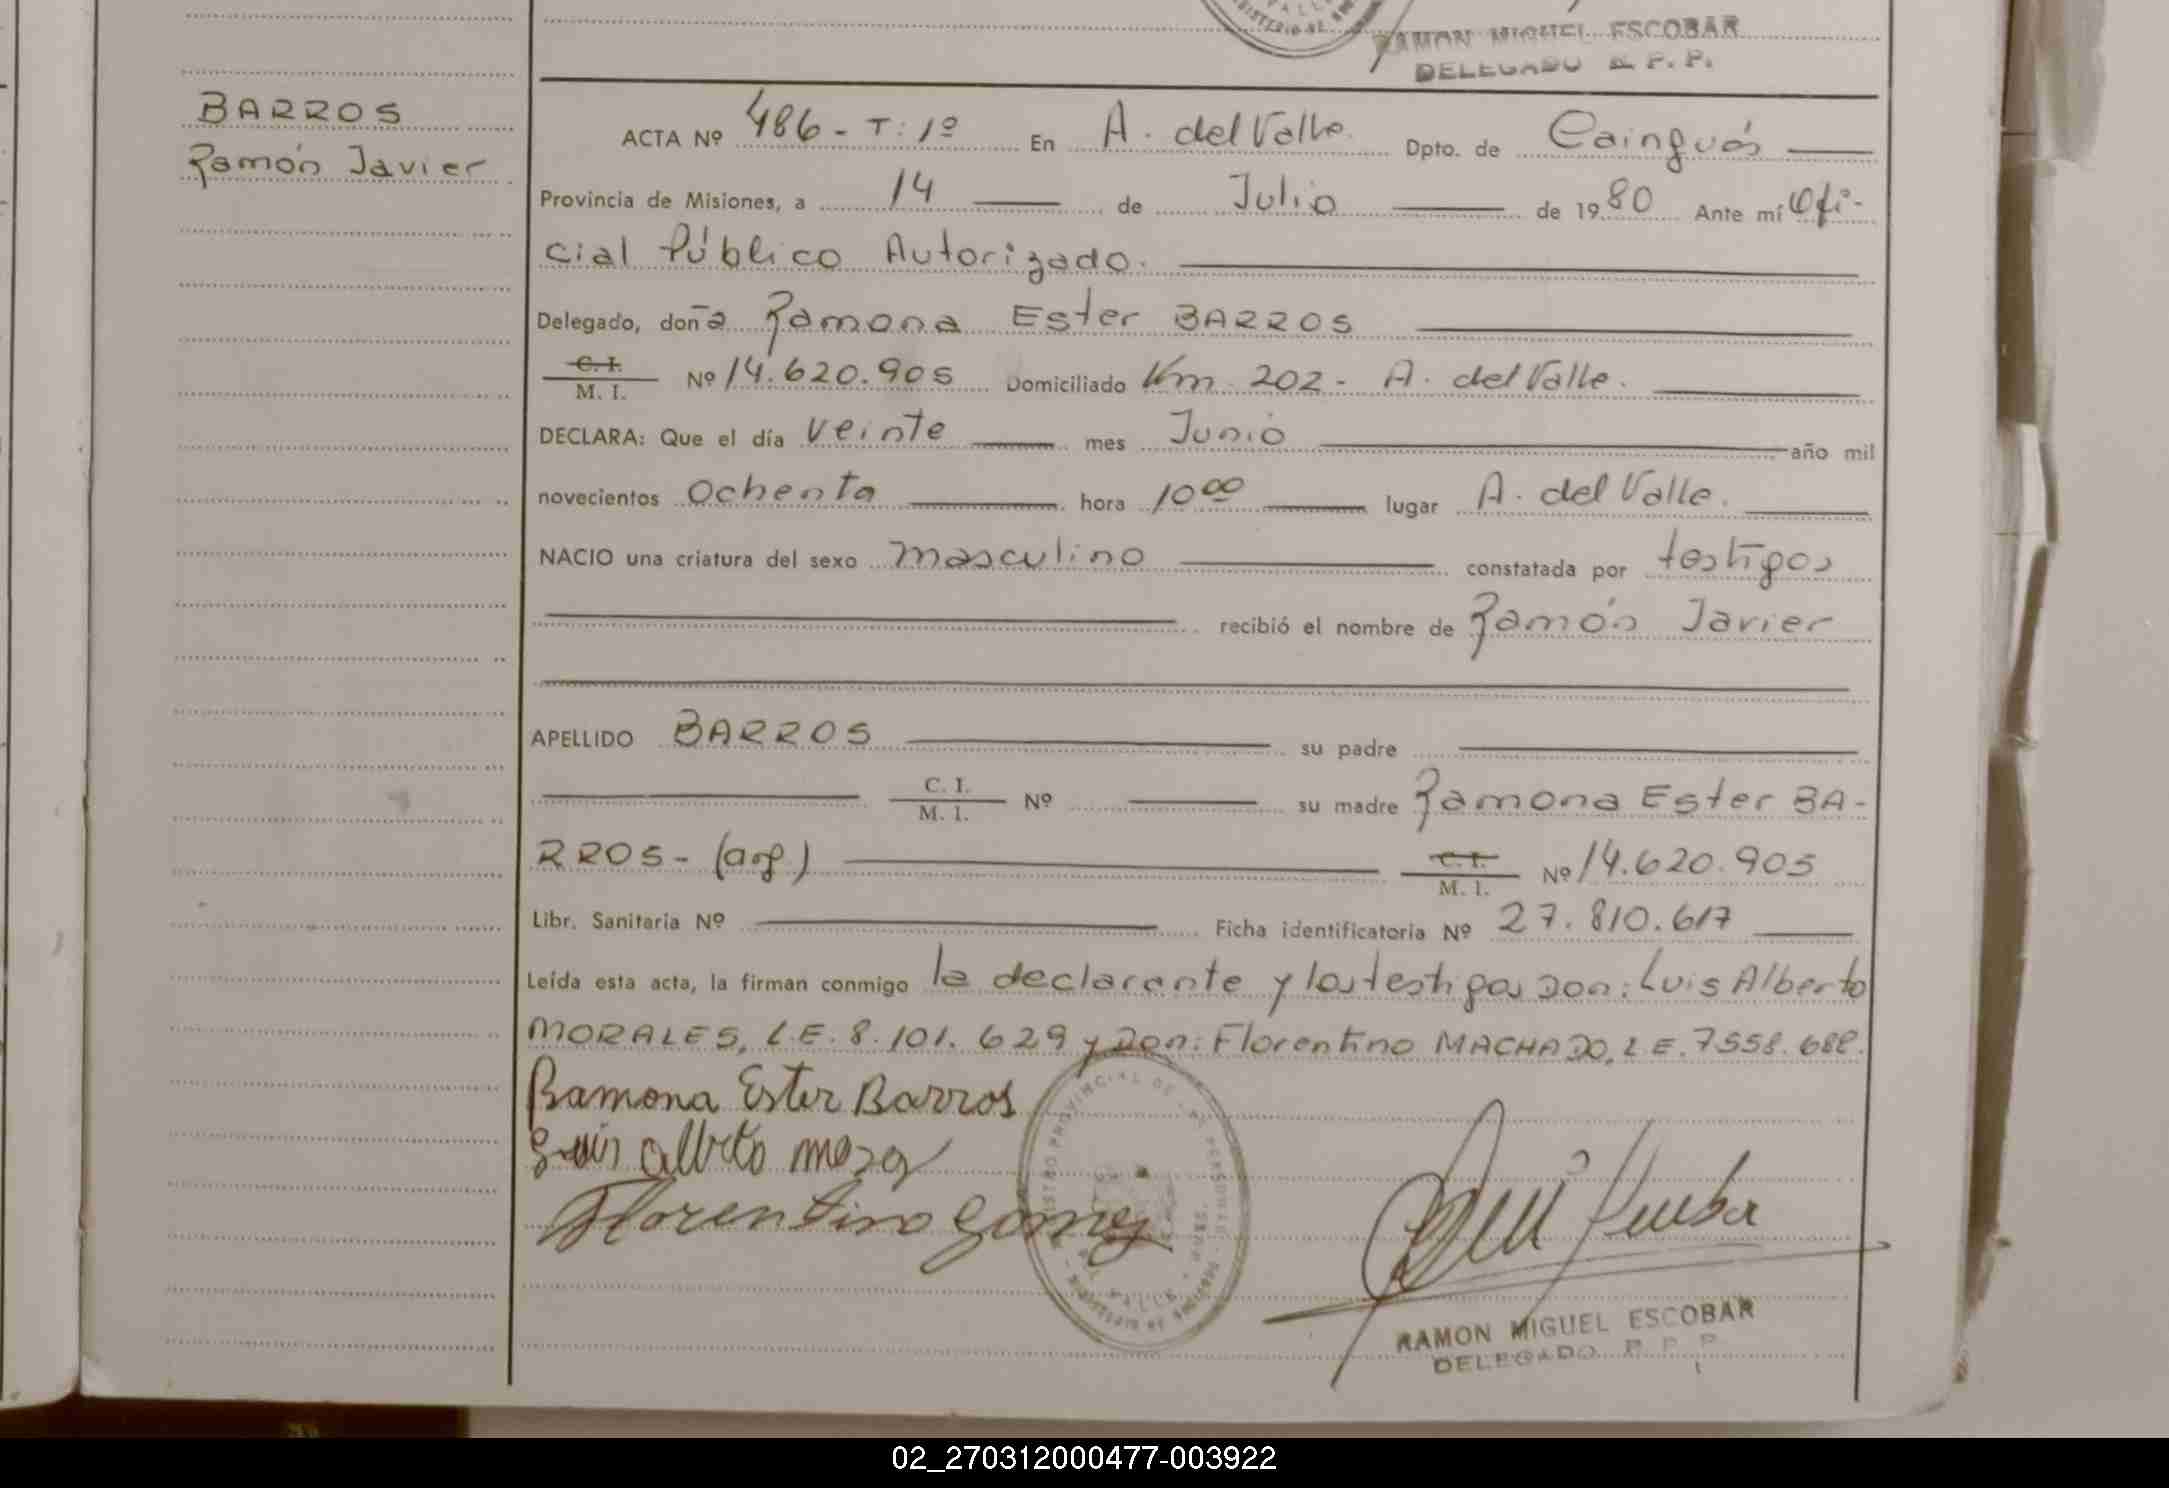 RAMON MIGUEL ESCOBAR
DELEGADO R. P. P.
BARROS
Ramón Javier
ACTA Nº 486 - T: 1º En A. del Valle. Dpto. de Cainguás
Provincia de Misiones, a 14 de Julio de 1980 Ante mí Ofi-
cial Público Autorizado.
Delegado, doña Ramona Ester BARROS
C. I.
M. I. Nº 14.620.905 Domiciliado Km. 202 - A. del Valle.
DECLARA: Que el día veinte mes Junio año mil
novecientos Ochenta hora 10 00 lugar A. del Valle.
NACIO una criatura del sexo masculino constatada por testigos
recibió el nombre de Ramón Javier
APELLIDO BARROS su padre
C. I.
M. I. Nº su madre Ramona Ester BA-
RROS - (arg.) C. I.
M. I. Nº 14.620.905
Libr. Sanitaria Nº Ficha identificatoria Nº 27.810.617
Leída esta acta, la firman conmigo la declarante y los testigos Don: Luis Alberto
MORALES, L.E. 8.101.629 y Don: Florentino MACHADO, L.E. 7558.688.
Ramona Ester Barros
Luis alberto
Florentino Gomez
REGISTRO PROVINCIAL DE LAS PERSONAS
DEL VALLE
RAMON MIGUEL ESCOBAR
DELEGADO R. P. P.
02_270312000477-003922